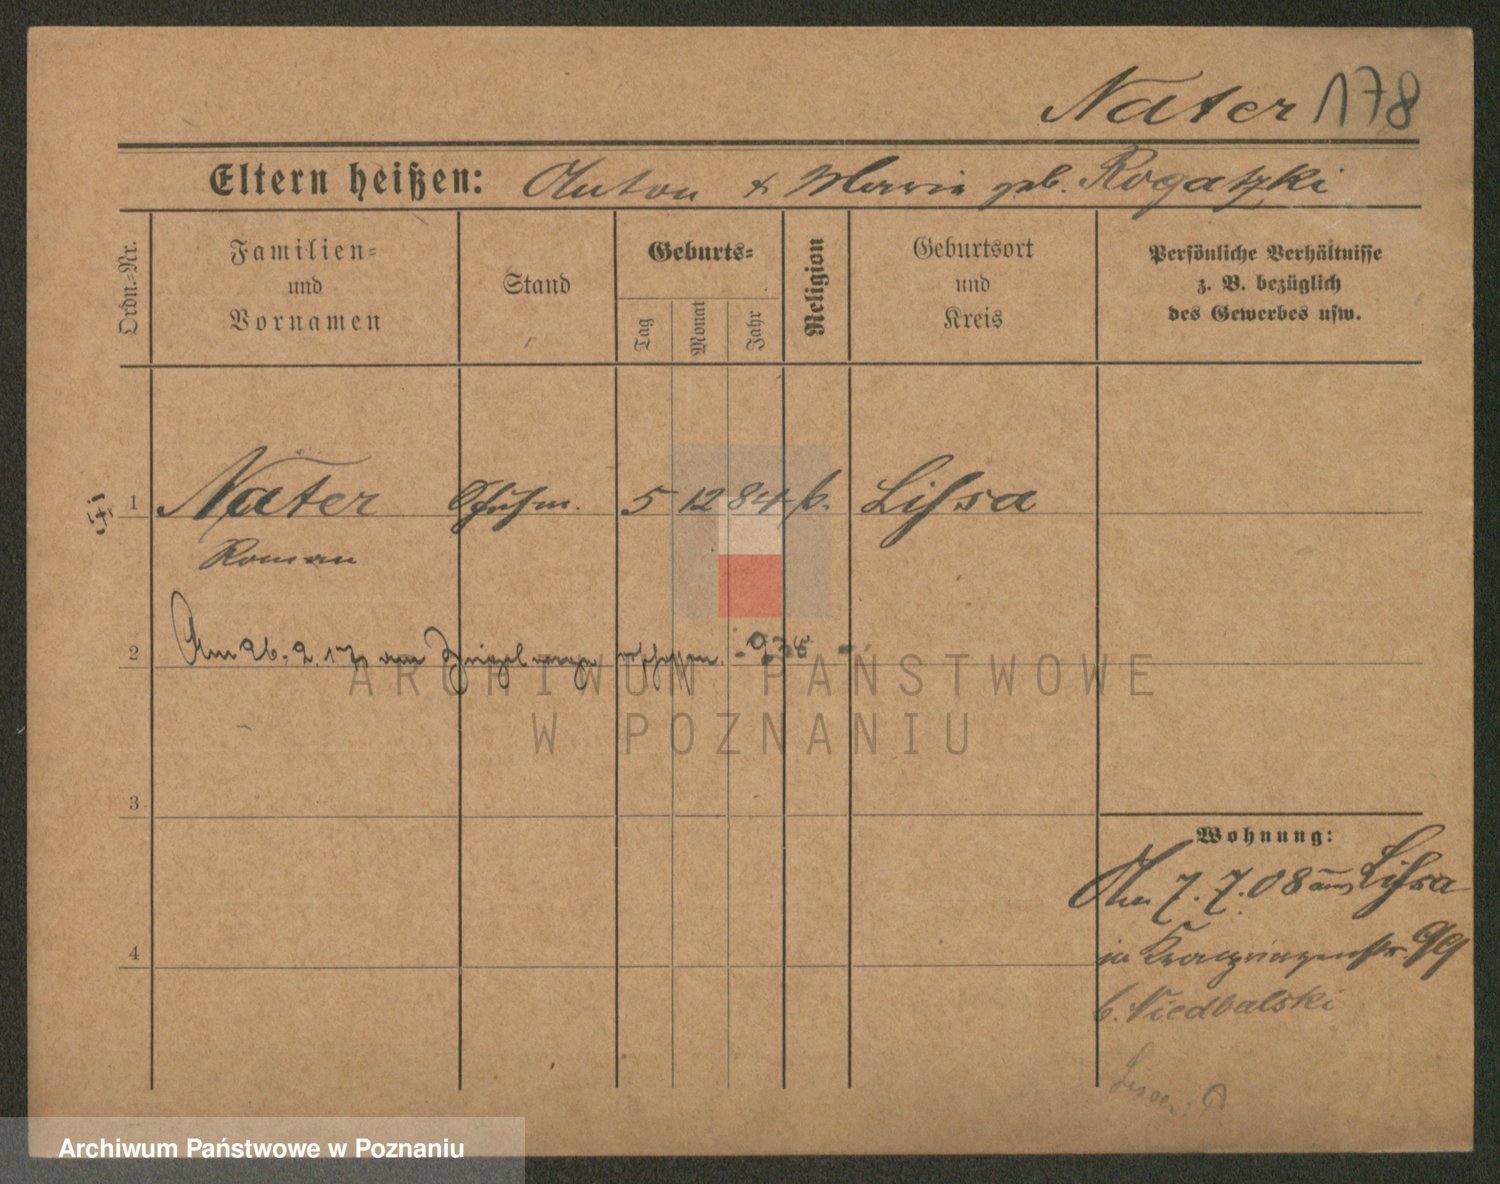 Nater 178
Eltern heißen: Anton & Marie geb. Rogatzki
Ordn.-Nr.
Familien- und Vornamen
Stand
Geburts-
Tag
Monat
Jahr
Religion
Geburtsort und Kreis
Persönliche Verhältnisse z. B. bezüglich des Gewerbes usw.
1 Nater Schuhm. 5 12 84 k. Lissa
Roman
2 Am 26. 2. 17
3
4
Wohnung:
Am 7. 7. 08 aus Lissa
in
b. Niedbalski
ARCHIWUM PAŃSTWOWE
W POZNANIU
Archiwum Państwowe w Poznaniu